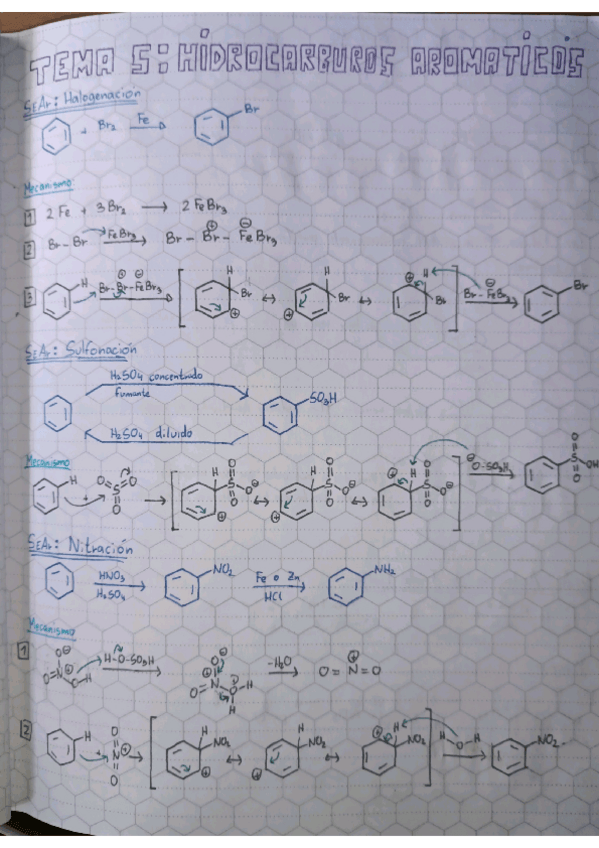 TEMA 5: HIDROCARBUROS AROMATICOS
SEAr: Halogenación
+ Br₂ Fe Br
Mecanismo:
1 2 Fe + 3 Br₂ → 2 FeBr₃
2 Br-Br FeBr₃ → Br-Br⊕-FeBr₃⊖
3 H Br-Br⊕-FeBr₃⊖ [ H Br ⊕ ↔ H Br ⊕ ↔ ⊕ H Br ] Br-FeBr₃⊖ → Br
SEAr: Sulfonación
H₂SO₄ concentrado
fumante
SO₃H
H₂SO₄ diluido
Mecanismo
H + O S O O → [ H O S O O⊖ ⊕ ↔ H O S O O⊖ ⊕ ↔ ⊕ H O S O O⊖ ] ⊖O-SO₃H → O S O OH
SEAr: Nitración
HNO₃ H₂SO₄ → NO₂ Fe o Zn HCl → NH₂
Mecanismo
1 O⊖ O=N⊕ OH H-O-SO₃H → O⊖ O=N⊕ O⊕ H H -H₂O → O=N⊕=O
2 H + O N⊕ O → [ H NO₂ ⊕ ↔ H NO₂ ⊕ ↔ ⊕ H NO₂ ] H O H → NO₂